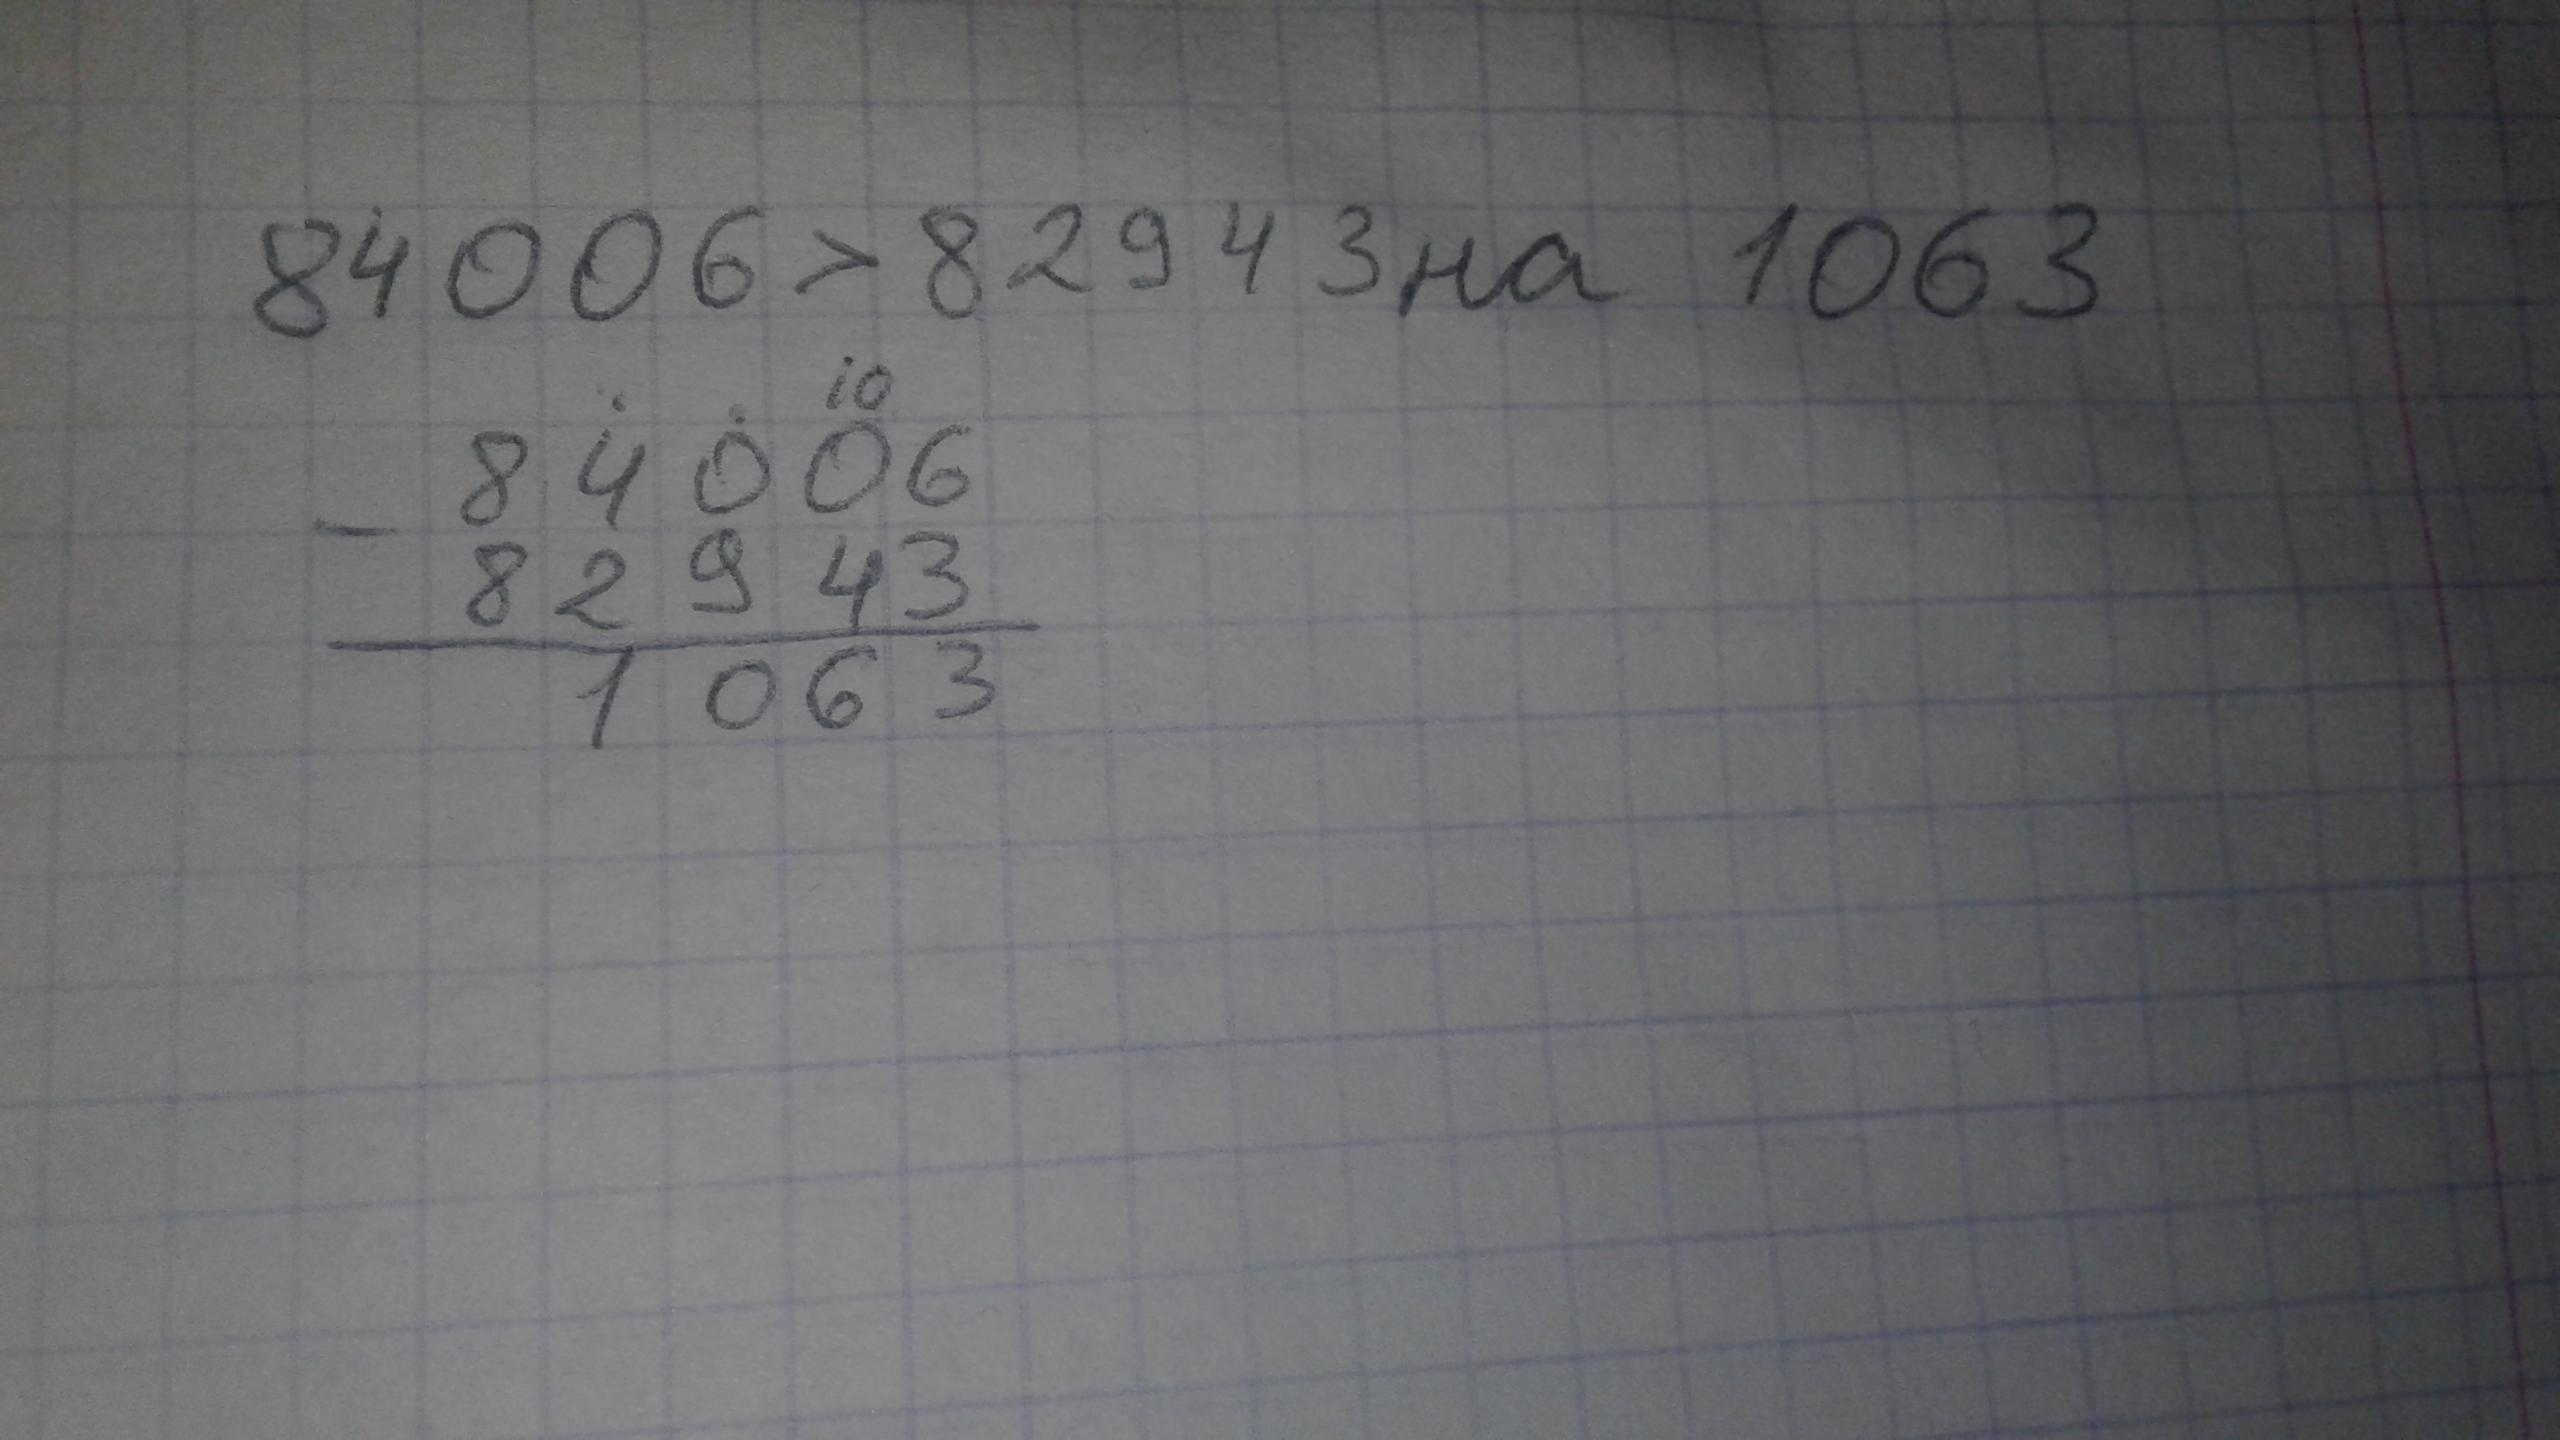 84006>82943на 1063
10
84006
-
82943
1063